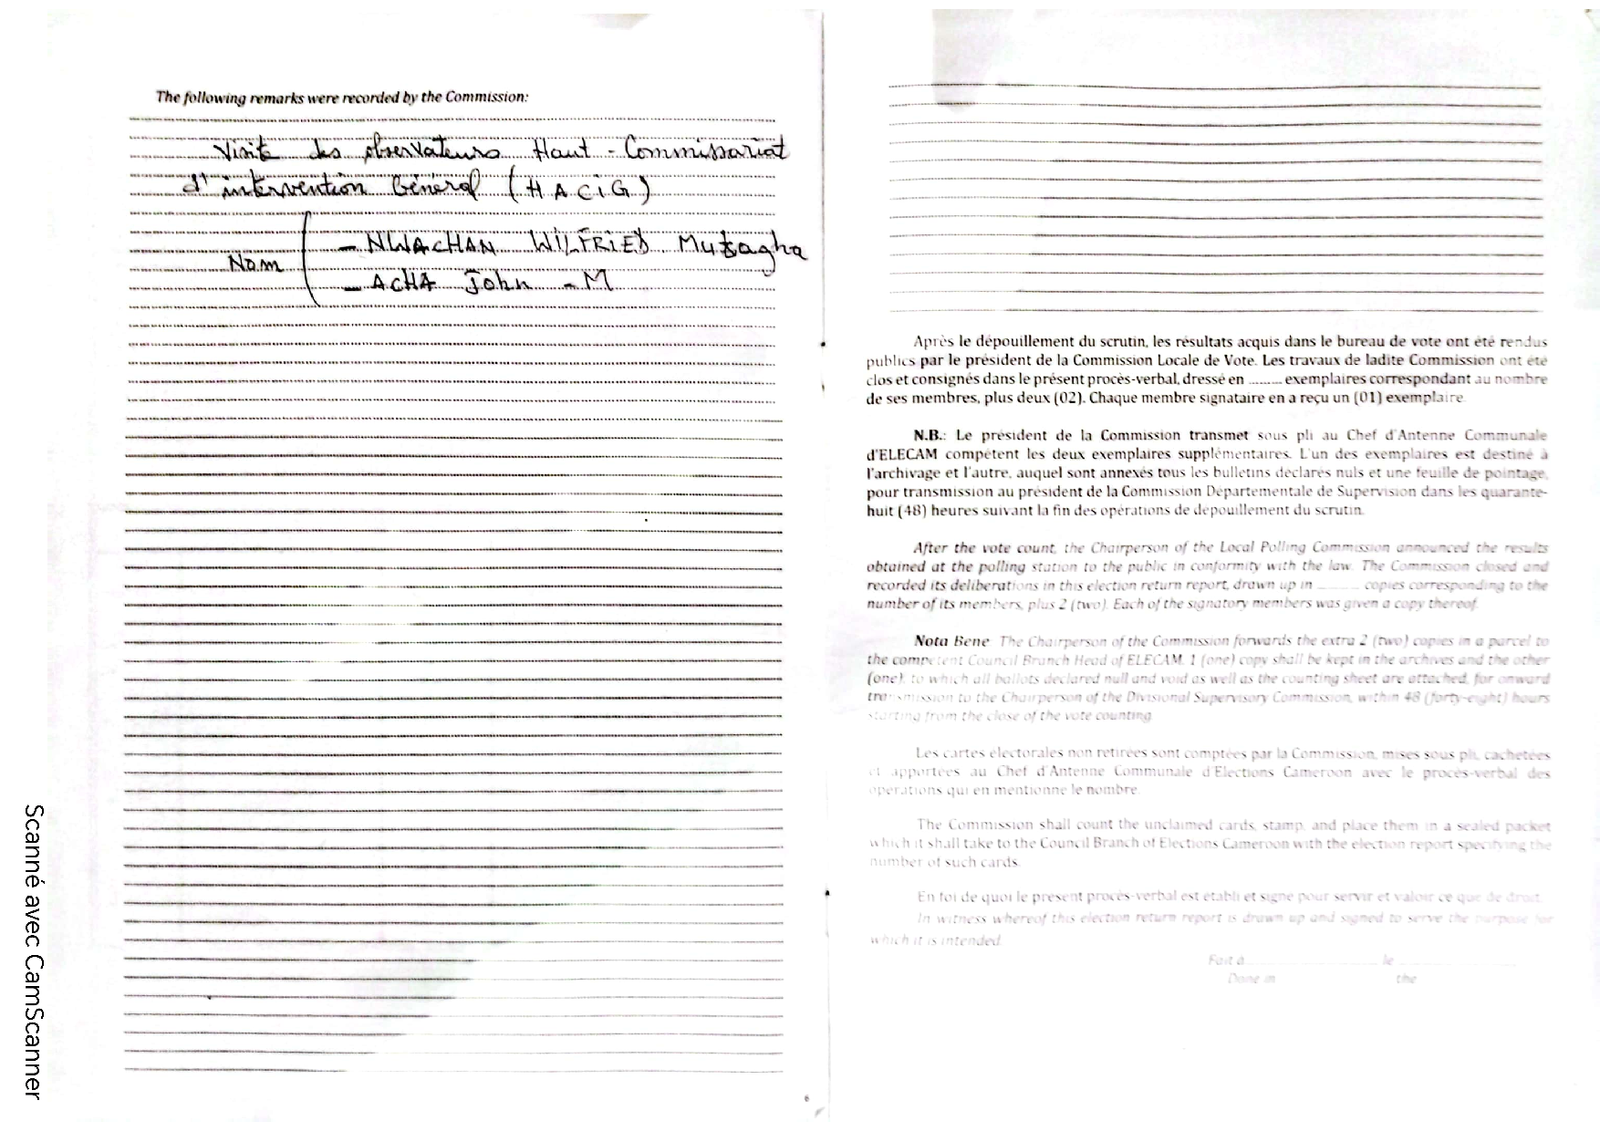 The following remarks were recorded by the Commission:
Visite des observateurs Haut-Commissariat
d'intervention Général (HACiG)
Nom
- NWACHAN WILFRIED Mutsagha
- ACHA John -M
6
Après le dépouillement du scrutin, les résultats acquis dans le bureau de vote ont été rendus
publics par le président de la Commission Locale de Vote. Les travaux de ladite Commission ont été
clos et consignés dans le présent procès-verbal, dressé en ......... exemplaires correspondant au nombre
de ses membres, plus deux (02). Chaque membre signataire en a reçu un (01) exemplaire.
N.B.: Le président de la Commission transmet sous pli au Chef d'Antenne Communale
d'ELECAM compétent les deux exemplaires supplémentaires. L'un des exemplaires est destiné à
l'archivage et l'autre, auquel sont annexés tous les bulletins déclarés nuls et une feuille de pointage,
pour transmission au président de la Commission Départementale de Supervision dans les quarante-
huit (48) heures suivant la fin des opérations de dépouillement du scrutin.
After the vote count, the Chairperson of the Local Polling Commission announced the results
obtained at the polling station to the public in conformity with the law. The Commission closed and
recorded its deliberations in this election return report, drawn up in ......... copies corresponding to the
number of its members, plus 2 (two). Each of the signatory members was given a copy thereof.
Nota Bene: The Chairperson of the Commission forwards the extra 2 (two) copies in a parcel to
the competent Council Branch Head of ELECAM. 1 (one) copy shall be kept in the archives and the other
(one), to which all ballots declared null and void as well as the counting sheet are attached, for onward
transmission to the Chairperson of the Divisional Supervisory Commission, within 48 (forty-eight) hours
starting from the close of the vote counting.
Les cartes électorales non retirées sont comptées par la Commission, mises sous pli, cachetées
et apportées au Chef d'Antenne Communale d'Elections Cameroon avec le procès-verbal des
opérations qui en mentionne le nombre.
The Commission shall count the unclaimed cards, stamp, and place them in a sealed packet
which it shall take to the Council Branch of Elections Cameroon with the election report specifying the
number of such cards.
En foi de quoi le présent procès-verbal est établi et signé pour servir et valoir ce que de droit.
In witness whereof this election return report is drawn up and signed to serve the purpose for
which it is intended.
Fait à ......... le .........
Done in the
Scanné avec CamScanner